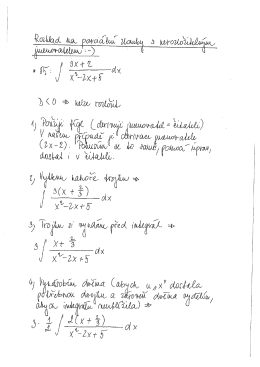 Rozklad na parciální zlomky s nerozložitelným
jmenovatelem :-)
• Př: ∫ (3x+2)/(x²-2x+5) dx
D<0 ⇒ nelze rozložit
1) Použiji fígl (derivuji jmenovatel = čitateli)
V našem případě je derivace jmenovatele
(2x-2). Pokusím se to samé, pomocí úprav,
dostat i v čitateli.
2) Vytknu nahoře trojku ⇒
∫ 3(x+2/3)/(x²-2x+5) dx
3) Trojku si vyndám před integrál ⇒
3∫ (x+2/3)/(x²-2x+5) dx
4) Vynásobím dvěma (abych u "x" dostala
potřebnou dvojku a zároveň dvěma vydělím,
abych integrálu neublížila) ⇒
3·1/2 ∫ 2(x+2/3)/(x²-2x+5) dx